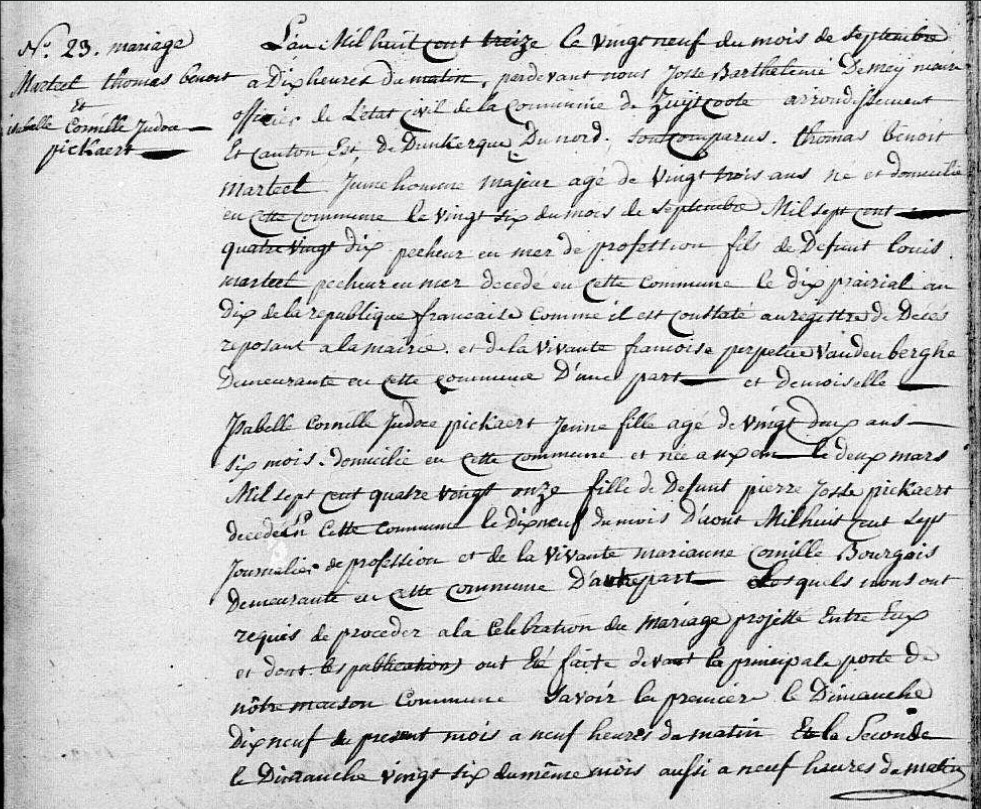 N.º 23. mariage
Marteel thomas benoit
et
isabelle Cornille Judoce
pickaert
L'an Mil huit cent treize le vingt neuf du mois de septembre
a Dix heures du matin, perdevant nous Josse Barthelemi Demey maire
officier de L'etat Civil de la Commune de Zuÿtcoote arrondissement
Et Canton Est, de Dunkerque, Du nord, sont comparus. thomas benoit
Marteel Jeune homme majeur agé de vingt trois ans né et domicilié
en cette commune le vingt six du mois de septembre Mil sept cent
quatre vingt dix pecheur en mer de profession fils de Defunt louis
marteel pecheur en mer decedé en cette commune le dix prairial an
dix de la republique francaise comme il est constaté au registre de Décés
reposant a la mairie. et de la vivante francoise perpetue vandenberghe
Demeurante en cette commune D'une part et demoiselle
Isabelle Cornille Judoce pickaert Jeune fille agé de vingt deux ans
six mois domicilié en cette commune et née a uxem le deux mars
Mil sept cent quatre vingt onze fille de Defunt pierre Josse pickaert
decedé en Cette commune le Dix neuf du mois D'aout Mil huit cent sept
Journalier de profession et de la vivante marianne Cornille Bourgois
Demeurante en cette commune D'autre part Lesquels nous ont
requis de proceder a la Celebration du Mariage projetté Entre Eux
et dont les publications ont Eté faite devant la principale porte de
nôtre maison Commune savoir la premiere le Dimanche
Dix neuf du present mois a neuf heures du matin Et la Seconde
le Dimanche vingt six du même mois aussi a neuf heures du matin